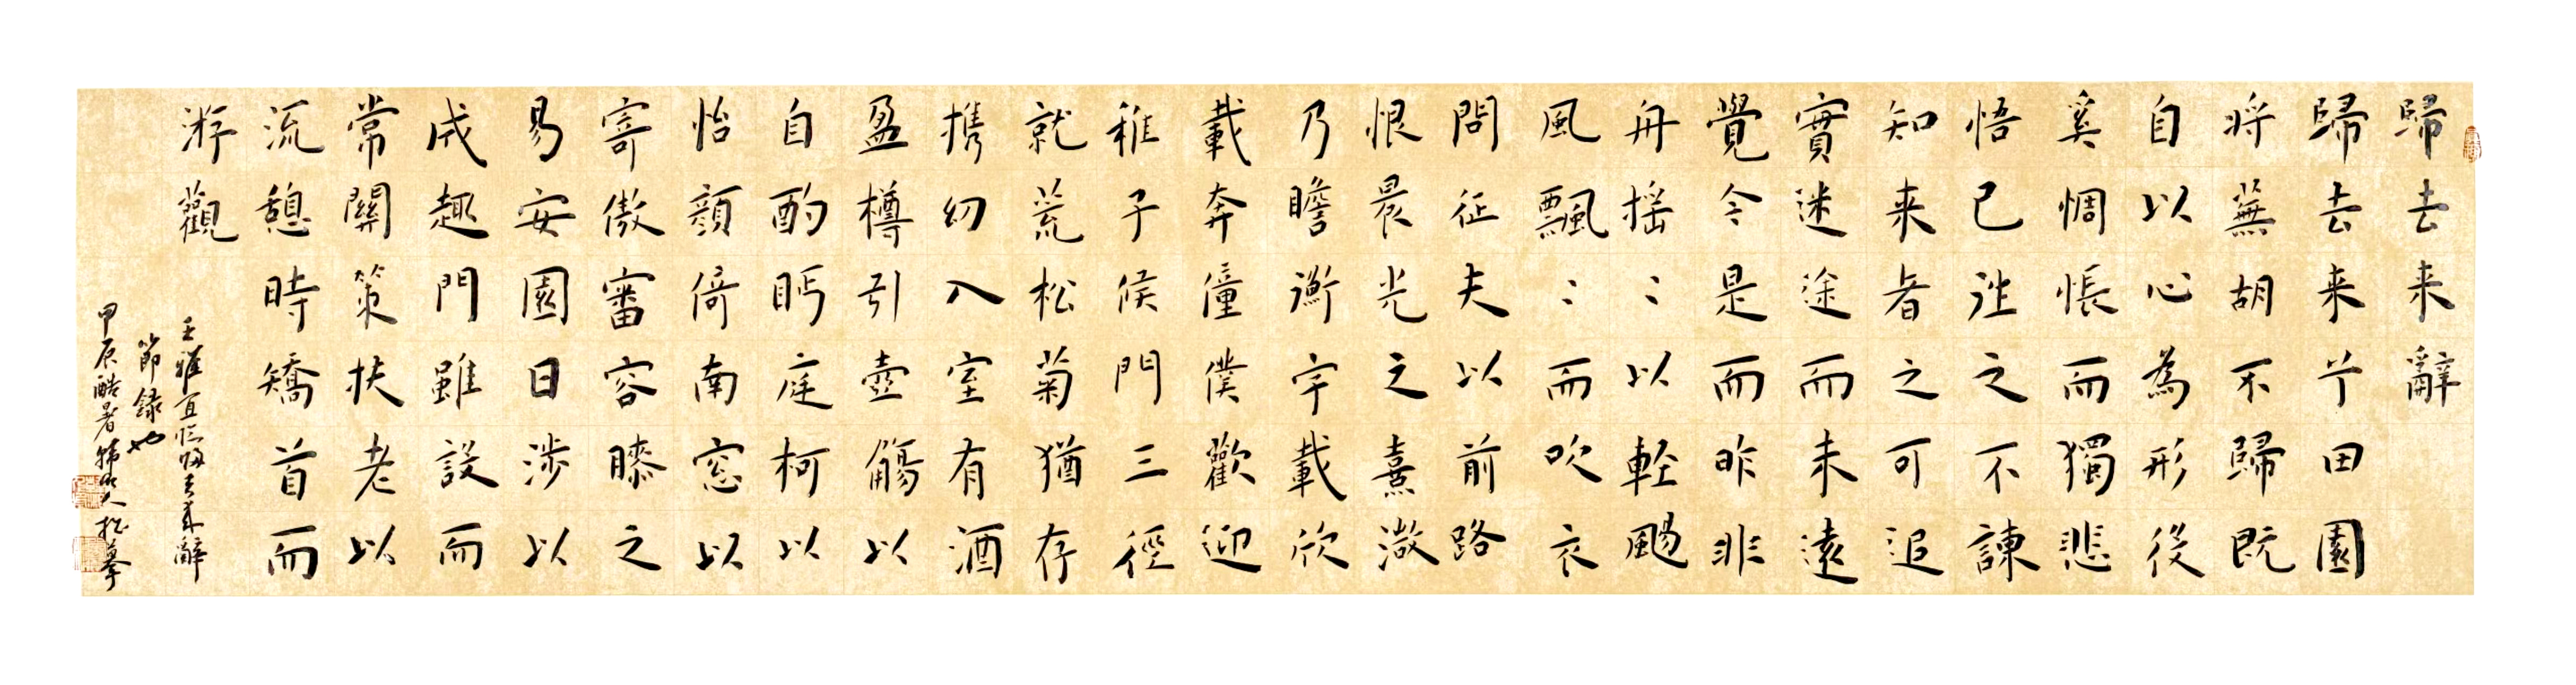 歸去来辭
歸去来兮田園
将蕪胡不歸既
自以心為形役
奚惆悵而獨悲
悟已往之不諫
知来者之可追
實迷途而未遠
覺今是而昨非
舟揺〻以輕颺
風飄〻而吹衣
問征夫以前路
恨晨光之熹微
乃瞻衡宇載欣
載奔僮僕歡迎
稚子候門三徑
就荒松菊猶存
携幼入室有酒
盈樽引壺觴以
自酌眄庭柯以
怡顔倚南窓以
寄傲審容膝之
易安園日涉以
成趣門雖設而
常關策扶老以
流憩時矯首而
游觀
王雅宜臨歸去来辭
節録也
甲辰酷暑